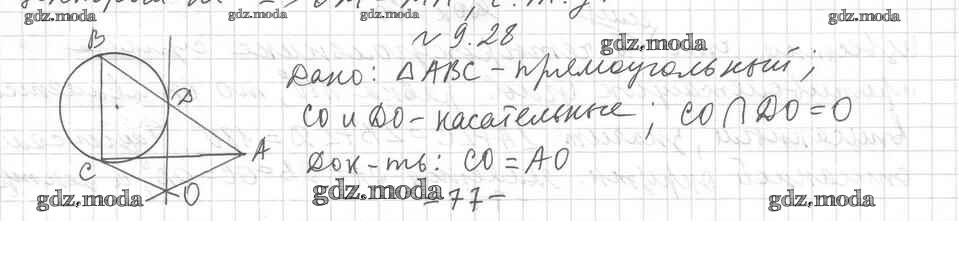 gdz.moda gdz.moda gdz.moda gdz.moda
№ 9.28
gdz.moda
Дано: △ABC - прямоугольный;
CO и DO - касательные; CO ∩ DO = O
Док-ть: CO = AO
B
D
A
C
O
gdz.moda gdz.moda gdz.moda
- 77 -